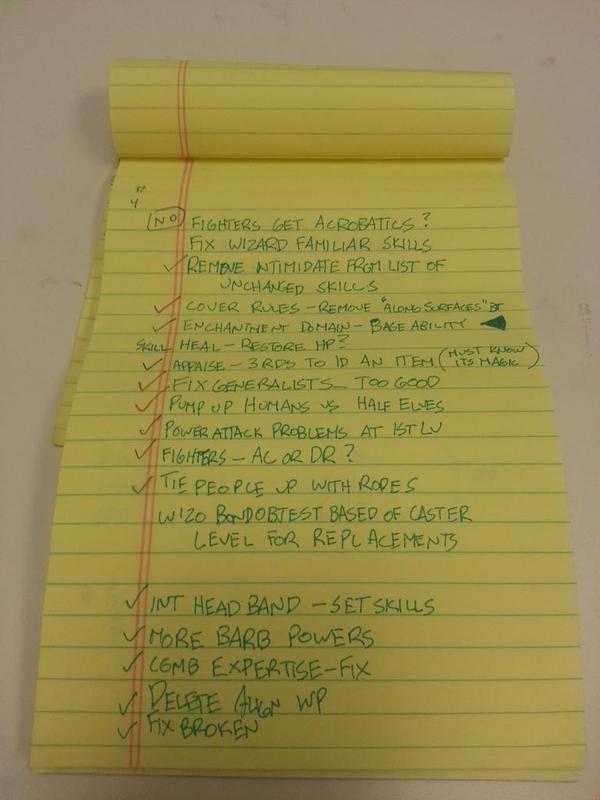 4
NO FIGHTERS GET ACROBATICS?
FIX WIZARD FAMILIAR SKILLS
✓ REMOVE INTIMIDATE FROM LIST OF
UNCHANGED SKILLS
✓ COVER RULES - REMOVE "ALONG SURFACES" BT
✓ ENCHANTMENT DOMAIN - BASE ABILITY
SKILL HEAL - RESTORE HP?
✓ APPRAISE - 3RDS TO ID AN ITEM (MUST KNOW
ITS MAGIC)
✓ FIX GENERALISTS - TOO GOOD
✓ PUMP UP HUMANS VS HALF ELVES
✓ POWER ATTACK PROBLEMS AT 1ST LV
✓ FIGHTERS - AC OR DR?
✓ TIE PEOPLE UP WITH ROPES
BASED OF CASTER
LEVEL FOR REPLACEMENTS
✓ INT HEAD BAND - SET SKILLS
✓ MORE BARB POWERS
✓ COMB EXPERTISE - FIX
✓ DELETE ALIGN WP
✓ FIX BROKEN